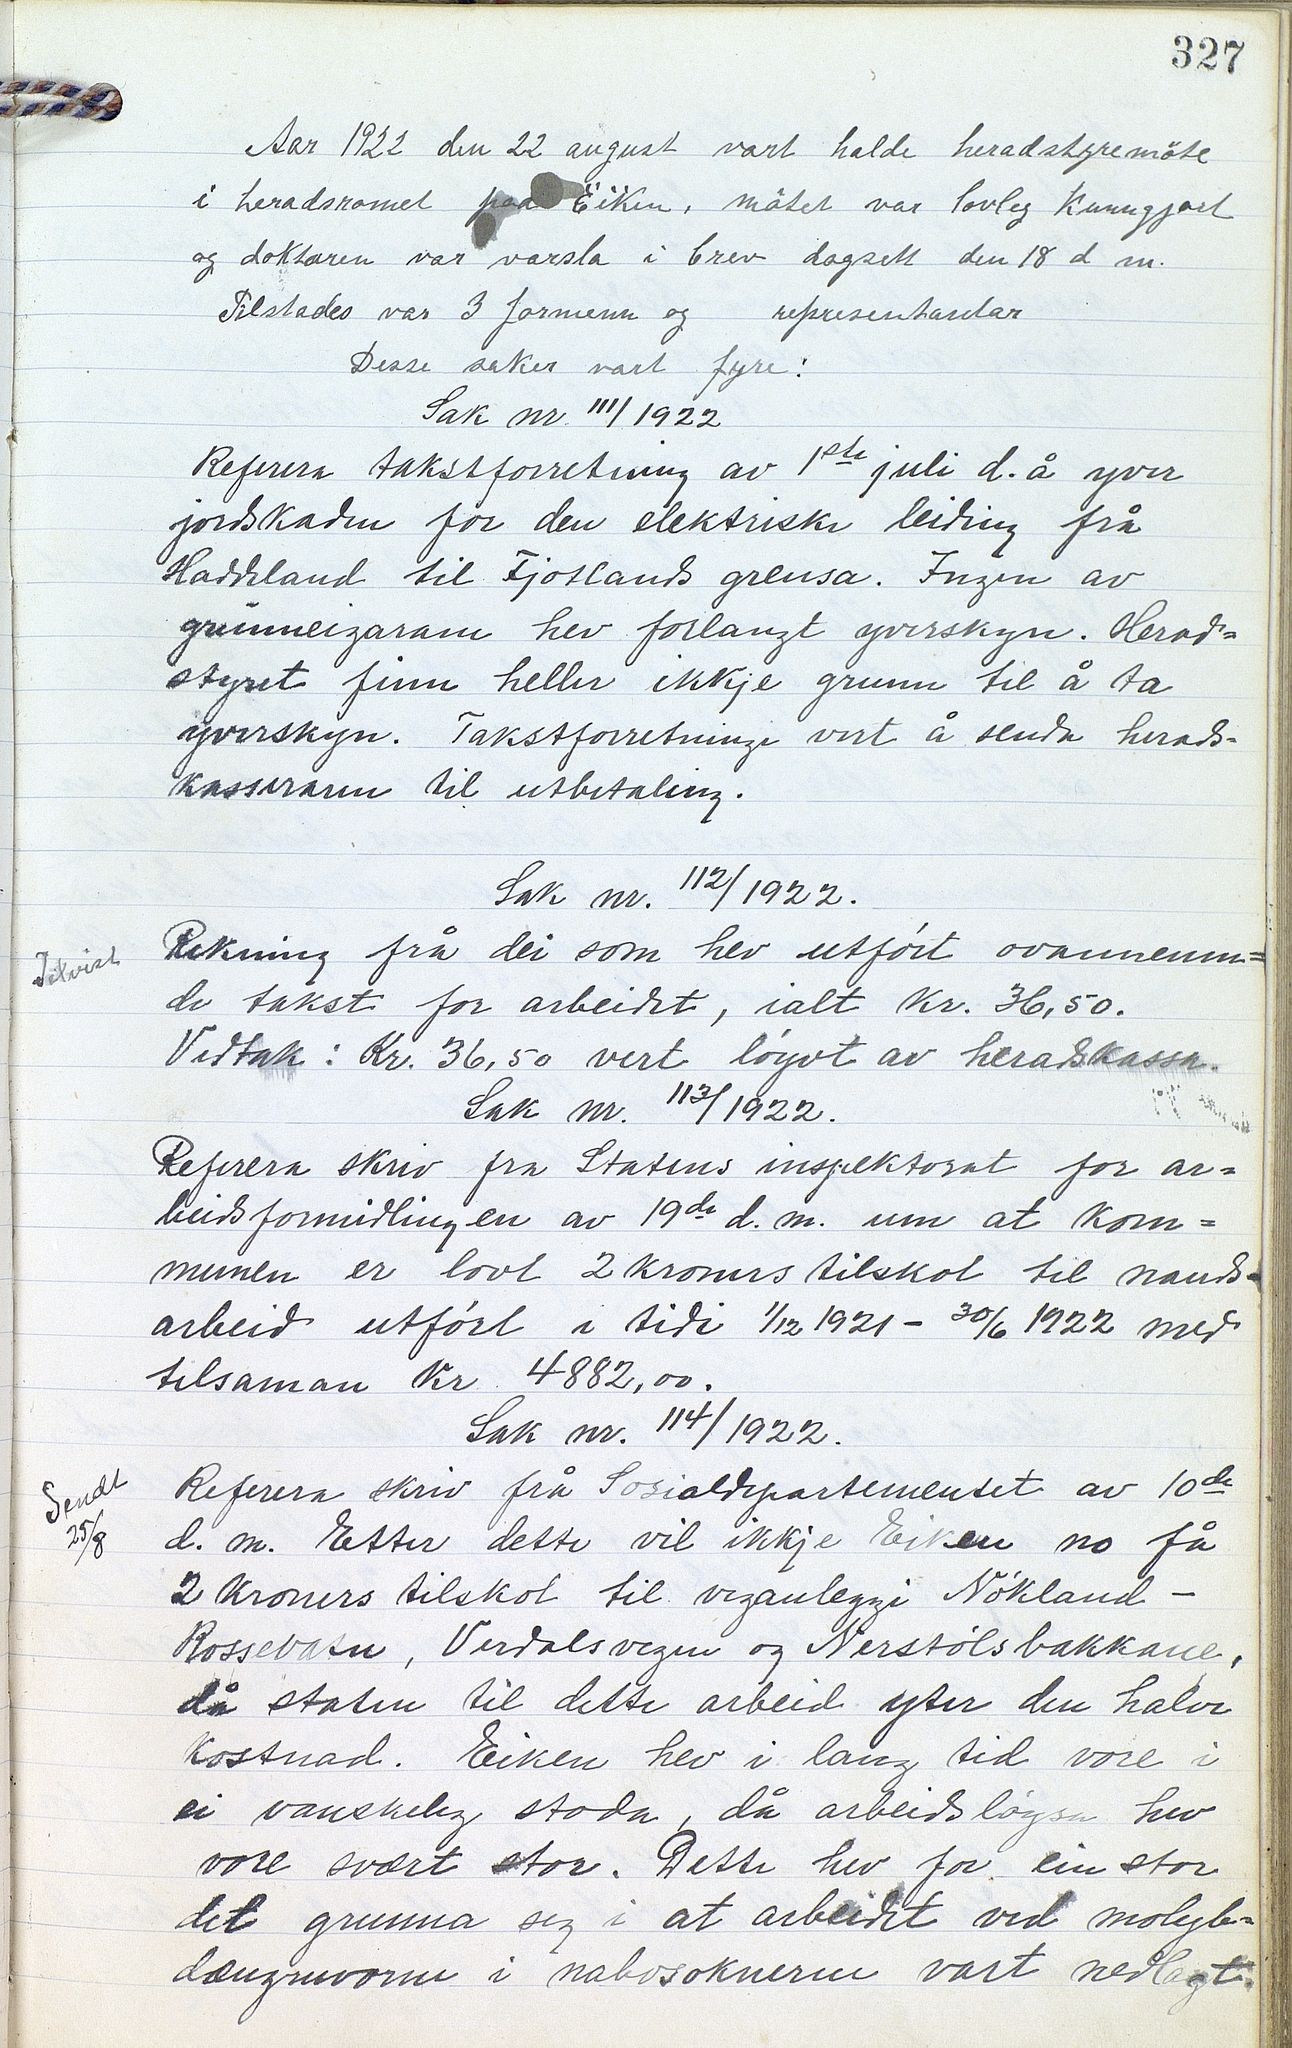 327
Aar 1922 den 22 august vart halde heradstyremöte
i heradsromet paa Eiken, mötet var lovleg kunngjort
og doktoren var varsla i brev dagsett den 18 d m.
Tilstades var 3 formenn og representantar
Desse saker vart fyre:
Sak nr. 111/1922
Referera takstforretning av 1ste juli d. å yver
jordskaden for den elektriske leiding frå
Haddeland til Fjotlands grensa. Ingen av
grunneigarane hev forlangt yverskyn. Herad=
styret finn heller ikkje grunn til å ta
yverskyn. Takstforretninge vert å senda herads=
kasseraren til utbetaling.
Sak nr. 112/1922.
Tilvist
Rekning frå dei som hev utfört ovannemn=
de takst for arbeidet, ialt kr. 36,50.
Vedtak: Kr. 36,50 vert löyvt av heradskassa.
Sak nr. 113/1922.
Referera skriv fra Statens inspektorat for ar=
beidsformidlingen av 19de d. m. um at kom=
munen er lovt 2 kroners tilskot til nauds=
arbeid utfört i tidi 1/12 1921 - 30/6 1922 med
tilsaman Kr 4882,00.
Sak nr. 114/1922.
Sendt
25/8
Referera skriv frå Sosialdepartementet av 10de
d. m. Etter dette vil ikkje Eiken no få
2 kroners tilskot til veganleggi Nökland -
Rossevatn, Verdalsvegen og Nerstölsbakkane,
då staten til dette arbeid yter den halve
kostnad. Eiken hev i lang tid vore i
ei vanskeleg stoda, då arbeidslöysa hev
vore svært stor. Dette hev for ein stor
del grunna seg i at arbeidet ved molyb=
dængruvorne i nabosoknerne vart nedlagt.